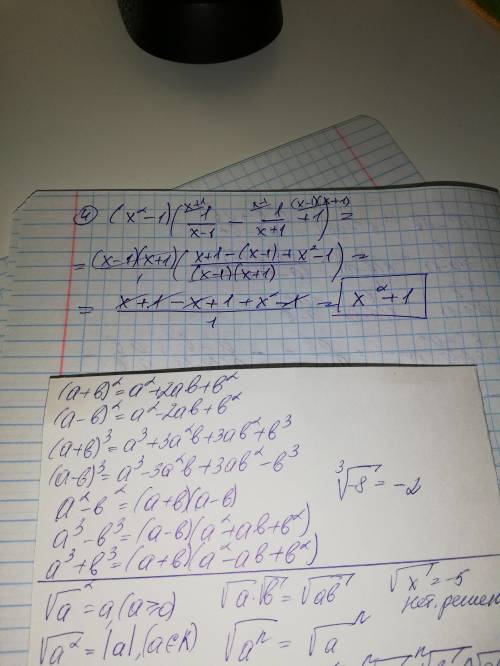 ④ (x²-1)(^{x+1} 1/(x-1) - ^{x-1} 1/(x+1) + ^{(x-1)(x+1)} 1) =
= (x-1)(x+1)/1 ((x+1-(x-1)+x²-1)/((x-1)(x+1))) =
= (x+1-x+1+x²-1)/1 = x²+1
(a+b)²=a²+2ab+b²
(a-b)²=a²-2ab+b²
(a+b)³=a³+3a²b+3ab²+b³
(a-b)³=a³-3a²b+3ab²-b³
a²-b²=(a+b)(a-b)
∛-8=-2
a³-b³=(a-b)(a²+ab+b²)
a³+b³=(a+b)(a²-ab+b²)
√a²=a,(a≥0) √a·√b=√ab √x=-5
нет. решен
√a²=|a|,(a∈R) √aⁿ=√aⁿ